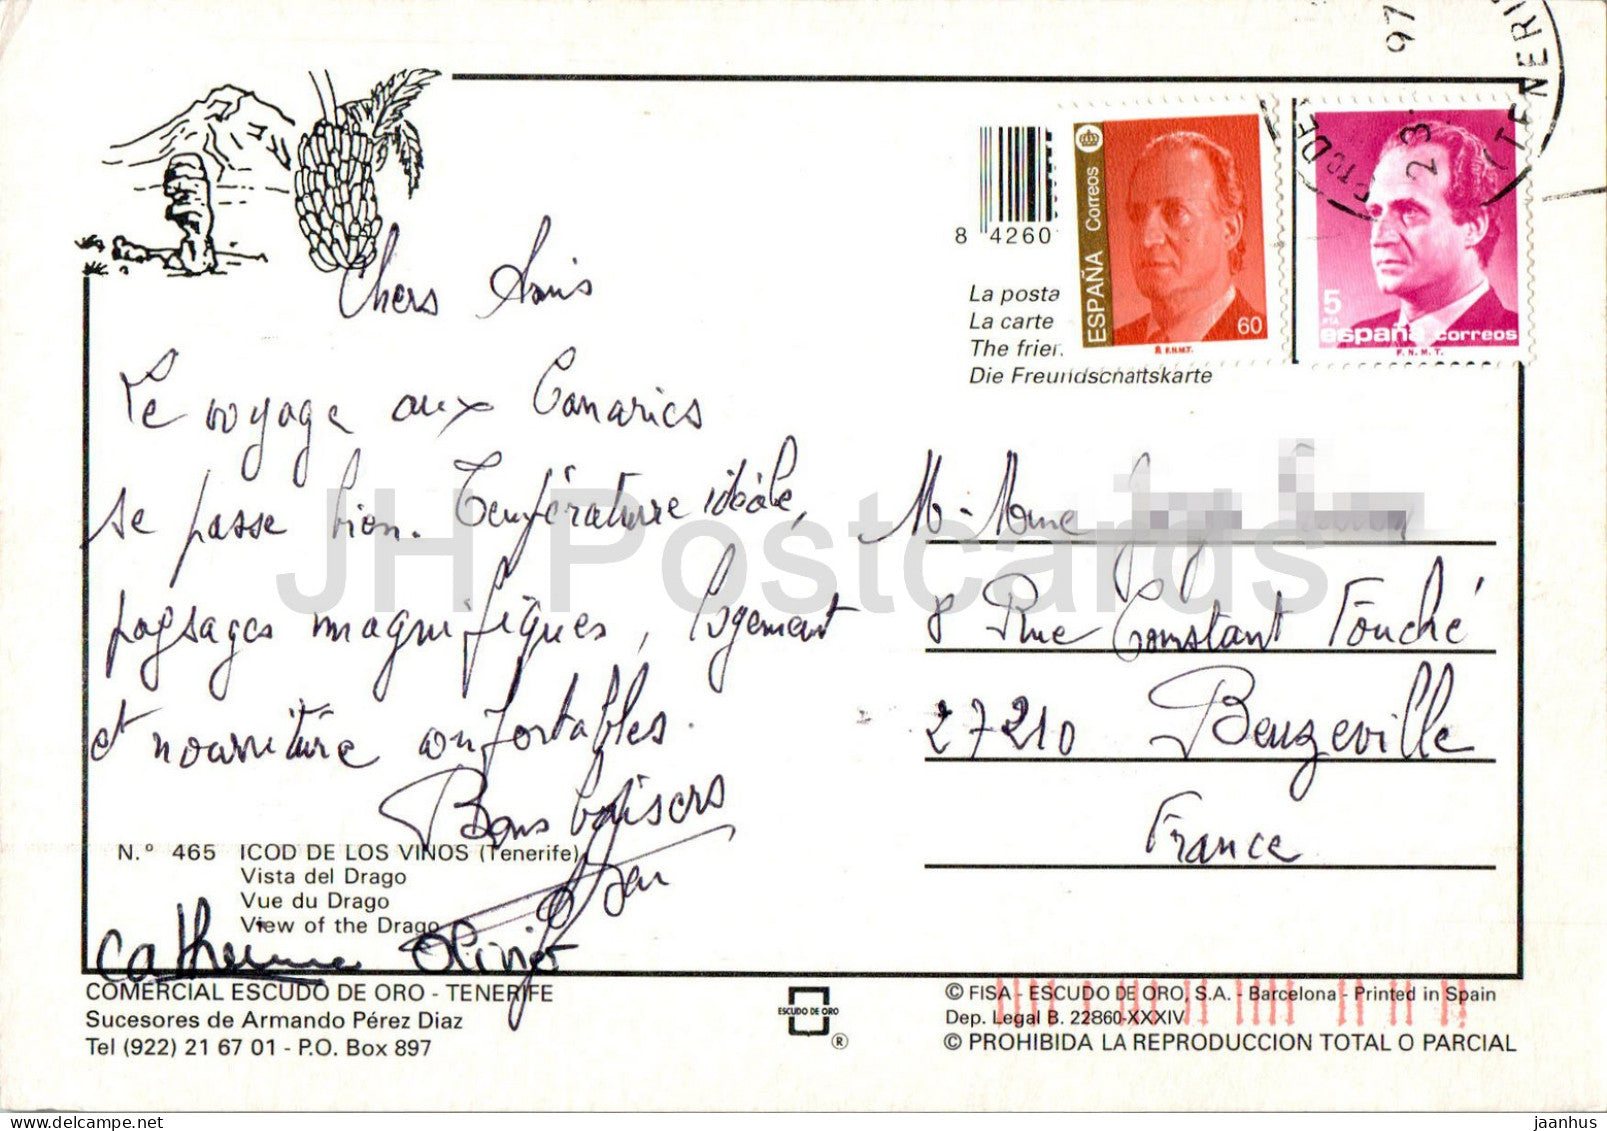 97
23.
TENERI
CTO DE
8 42601
ESPAÑA Correos
60
F.N.M.T.
5
PTA
españa correos
F.N.M.T.
La posta
La carte
The frien
Die Freundschaftskarte
Chers Amis
Le voyage aux Canaries
se passe bien. Température idéale,
paysages magnifiques, logement
et nourriture confortables.
Bons baisers
Catherine
M-Mme
8 Rue Constant Fouché
27210 Beuzeville
France
N.º 465 ICOD DE LOS VINOS (Tenerife)
Vista del Drago
Vue du Drago
View of the Drago
COMERCIAL ESCUDO DE ORO - TENERIFE
Sucesores de Armando Pérez Diaz
Tel (922) 21 67 01 - P.O. Box 897
ESCUDO DE ORO
®
© FISA - ESCUDO DE ORO, S.A. - Barcelona - Printed in Spain
Dep. Legal B. 22860-XXXIV
© PROHIBIDA LA REPRODUCCION TOTAL O PARCIAL
JH Postcards
delcampe.net
jaanhus